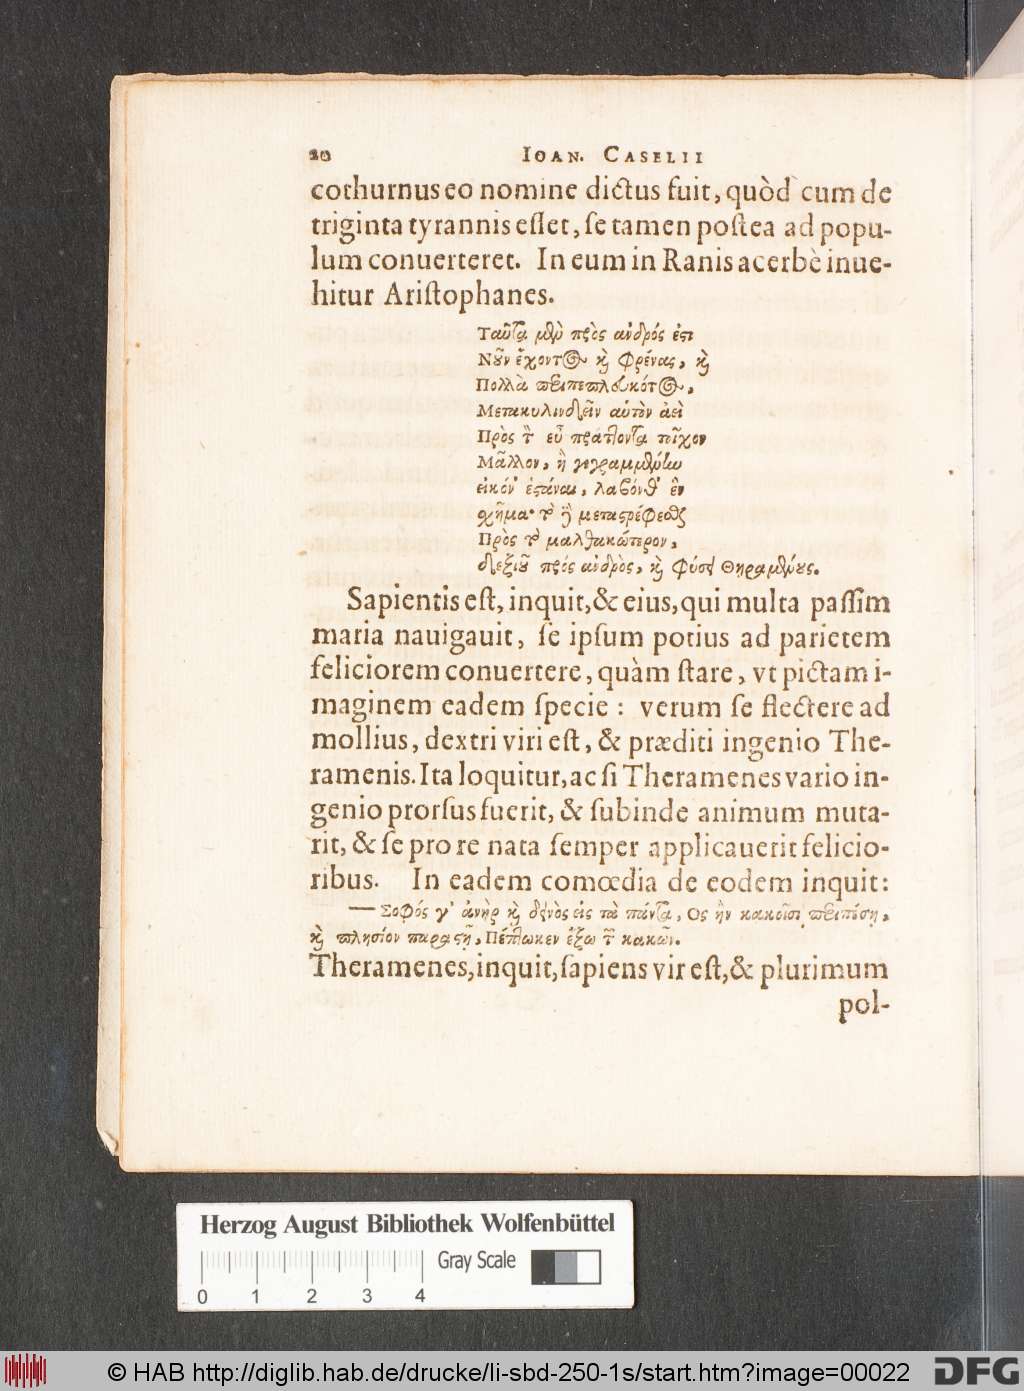 20 IOAN. CASELII
cothurnus eo nomine dictus fuit, quòd cum de
triginta tyrannis eſſet, ſe tamen poſtea ad popu-
lum conuerteret. In eum in Ranis acerbè inue-
hitur Ariſtophanes.
Ταῦτα μὲν πρὸς ἀνδρός ἐστι
Νοῦν ἔχοντος καὶ Φρένας, καὶ
Πολλὰ περιπεπλευκότος,
Μετακυλινδεῖν αὑτὸν ἀεὶ
Πρὸς τὸν εὖ πράττοντα τοῖχον
Μᾶλλον, ἢ γεγραμμένην
εἰκόν' ἑστάναι, λαβόνθ' ἓν
σχῆμα· τὸ δὲ μεταστρέφεσθαι
Πρὸς τὸ μαλθακώτερον,
δεξιοῦ πρός ἀνδρὸς, καὶ φύσει Θηραμένους.
Sapientis eſt, inquit, & eius, qui multa paſſim
maria nauigauit, ſe ipſum potius ad parietem
feliciorem conuertere, quàm ſtare, vt pictam i-
maginem eadem ſpecie : verum ſe flectere ad
mollius, dextri viri eſt, & præditi ingenio The-
ramenis. Ita loquitur, ac ſi Theramenes vario in-
genio prorſus fuerit, & ſubinde animum muta-
rit, & ſe pro re nata ſemper applicauerit felicio-
ribus. In eadem comœdia de eodem inquit:
— Σοφός γ' ἀνὴρ καὶ δεινὸς εἰς τὰ πάντα, Ος ἢν κακοῖσι περιπέσῃ,
καὶ πλησίον παραστῇ, Πέπτωκεν ἔξω τῶν κακῶν.
Theramenes, inquit, ſapiens vir eſt, & plurimum
pol-
Herzog August Bibliothek Wolfenbüttel
Gray Scale
0 1 2 3 4
© HAB http://diglib.hab.de/drucke/li-sbd-250-1s/start.htm?image=00022 DFG